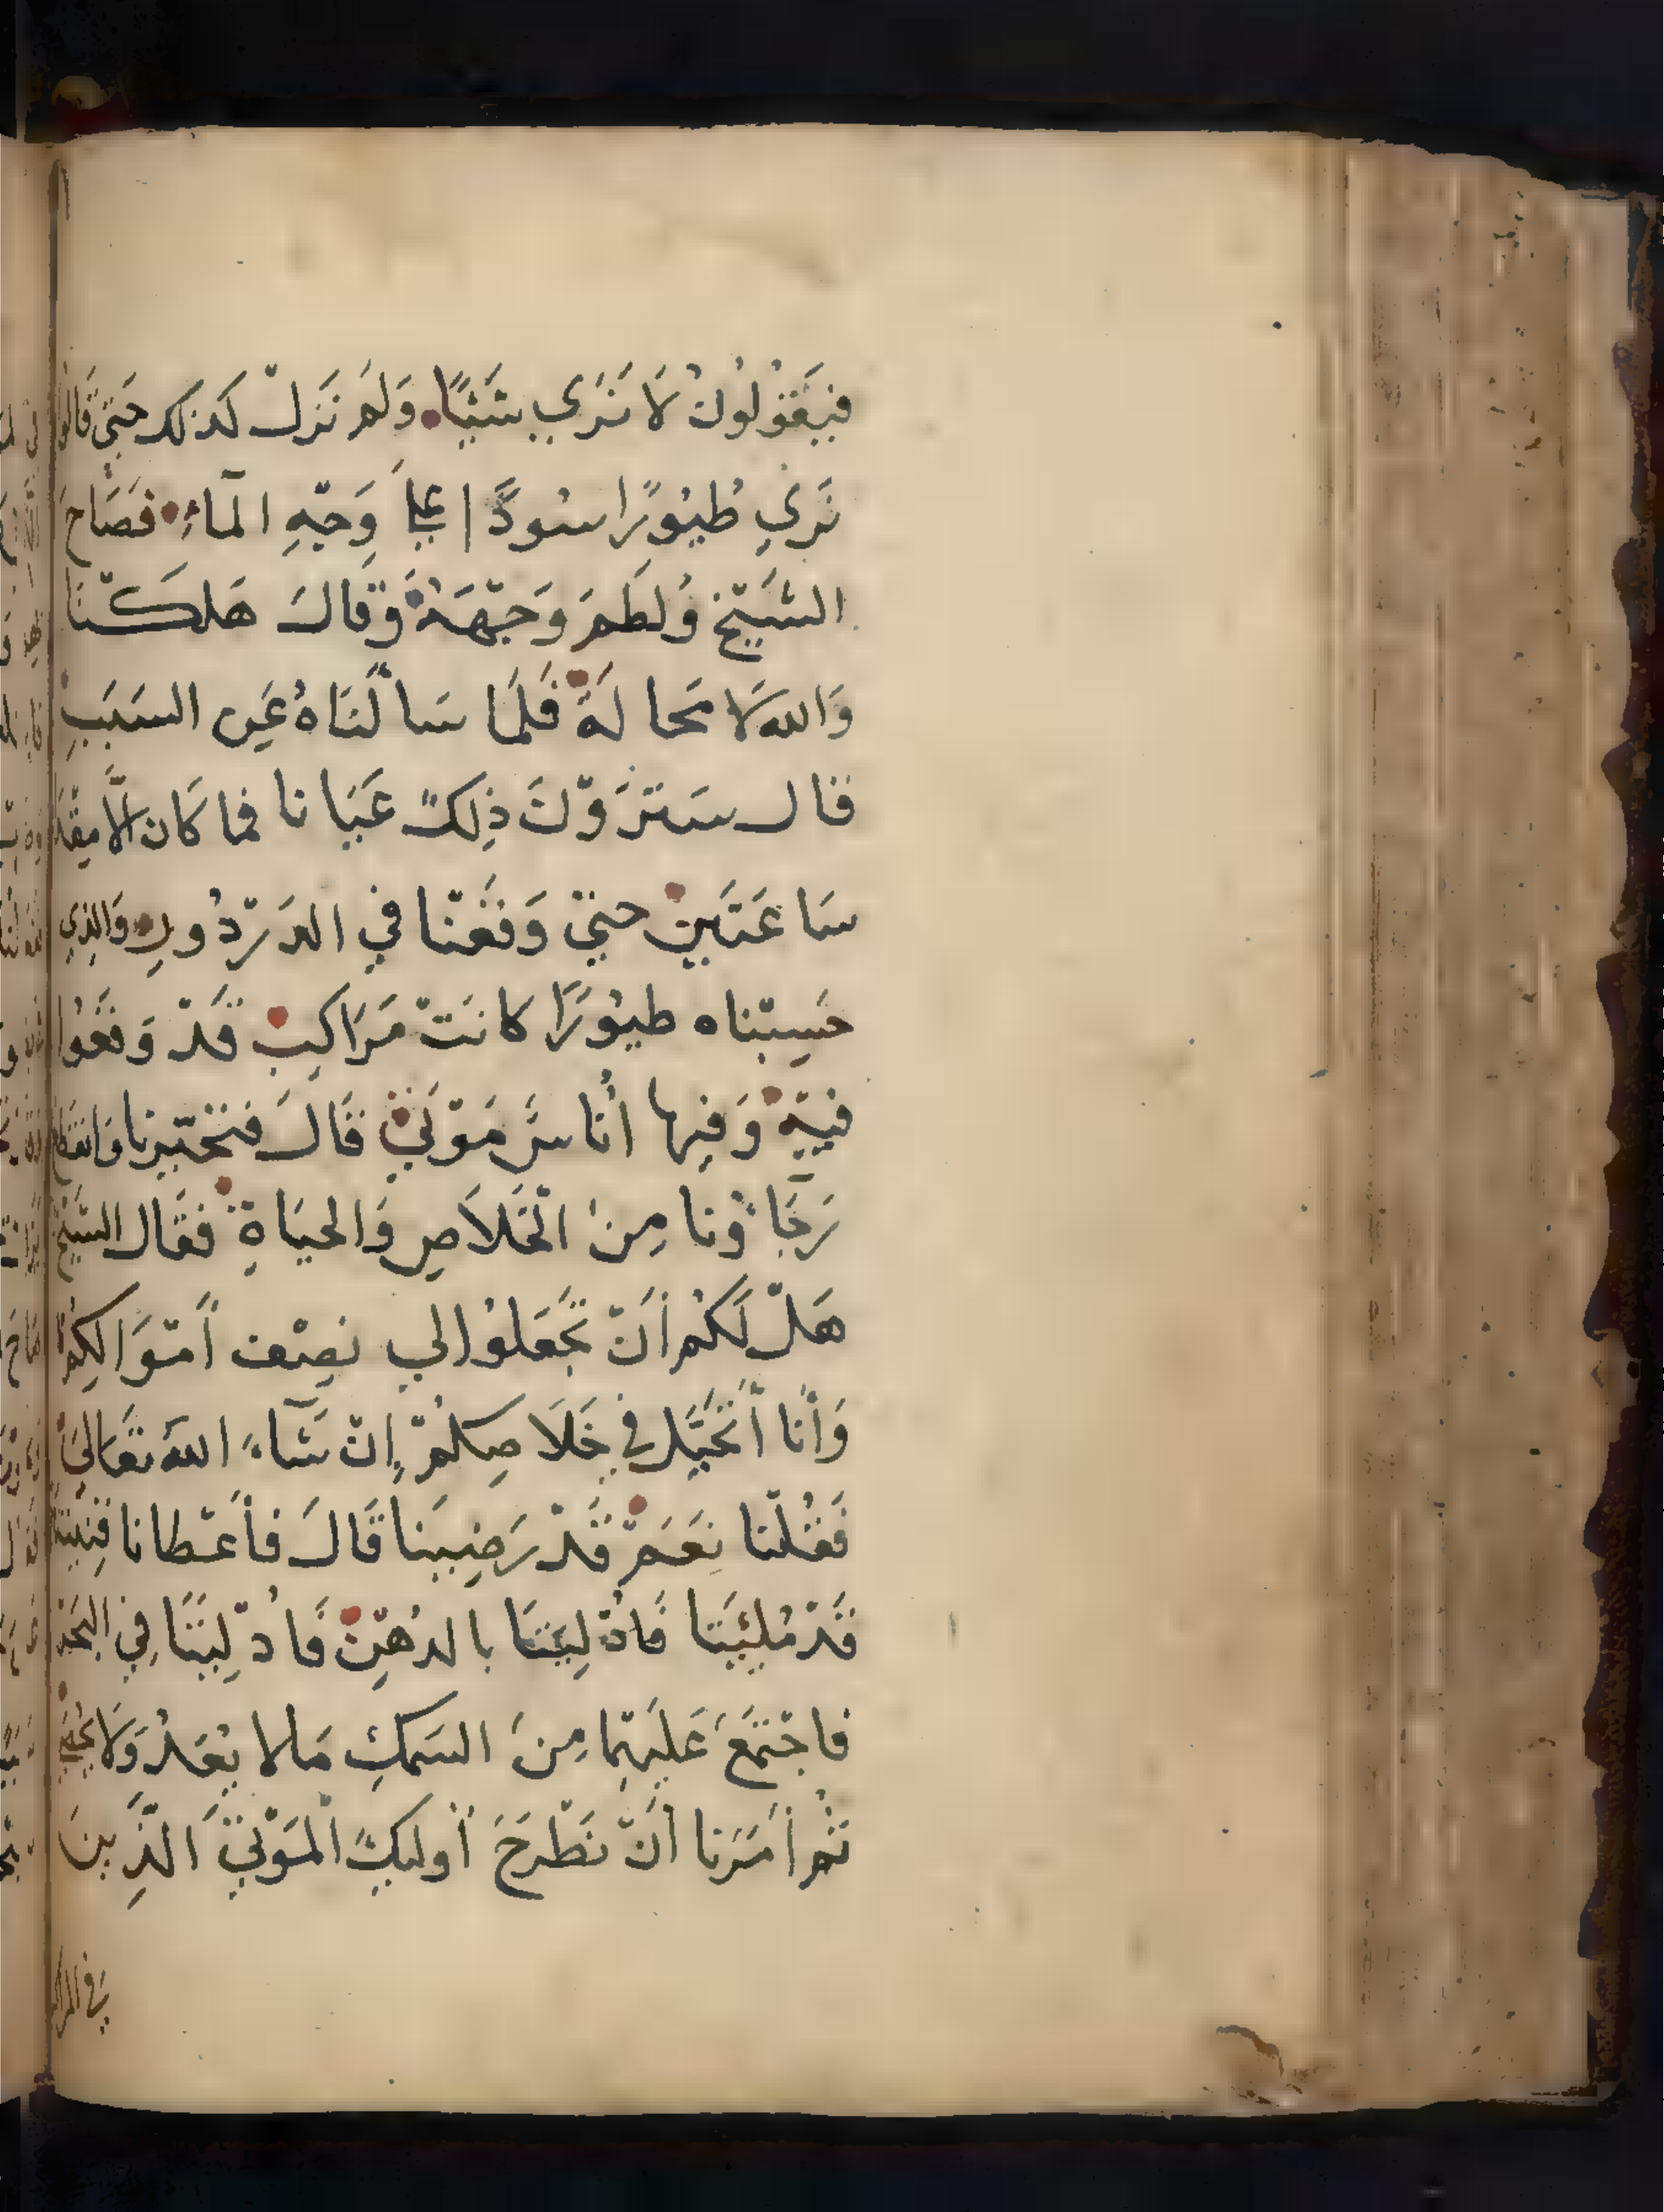 فَيَقُوْلُونْ لَا نَرَي شَئيًا وَلَمْ نَزلْ كذلك حَتي قَالُوا
نَرَي طُيُورًا سُودًا عَلَي وَجْهِ المآءِ فَصَاحَ
الشَيْخ وَلَطَمَ وَجْهَهُ وَقالَ هَلكْنَا
وَالله لَا مَحالَةَ فَلَمَا سَالْنَاهُ عَنِ السَبَبِ
قال سَتَرَوْنَ ذِلكَ عَيَانا فما كَان الّا مِقْدَا
سَاعَتَين حتيّ وَقَعْنا في الدَرْدُورِ وَالذِي
حَسِبْناه طيُورًا كانَتْ مَرَاكِب قَدْ وَقَعُوا
فيْهِ وَفيها أُناسٌ مَوْتَي قَالَ فتحَيّرنا وَانقطع
رَجَاؤنا مِنَ الْخَلَاصِ وَالحيَاةِ فقَال الشَيْخ
هَلْ لَكُم أَنْ تَجْعَلُوا لي نِصْف أَمْوَالكِمْ
وَأنا أَتَحَيَّل في خَلَاصِكمْ إِنْ شآءَ الله تعَاليَ
فَقُلْنا نِعَمْ قَدْ رَضِيَنا قَالَ فأَعْطانا قِنينَتَ
قَدْ مُلِيَتا فَأدْلِيَنَا بالدُهْنِ فَأدْلِيَنَا فِي البَحْر
فاجْتَمَعَ عَلَيهِما مِنَ السَمكِ مَالا يُعَدُ وَلَا يُحْصَي
ثُم أَمَرَنا أَنْ نَطْرَحَ أولئكَ الْمَوْتيَ الذِّينَ
في المراكب